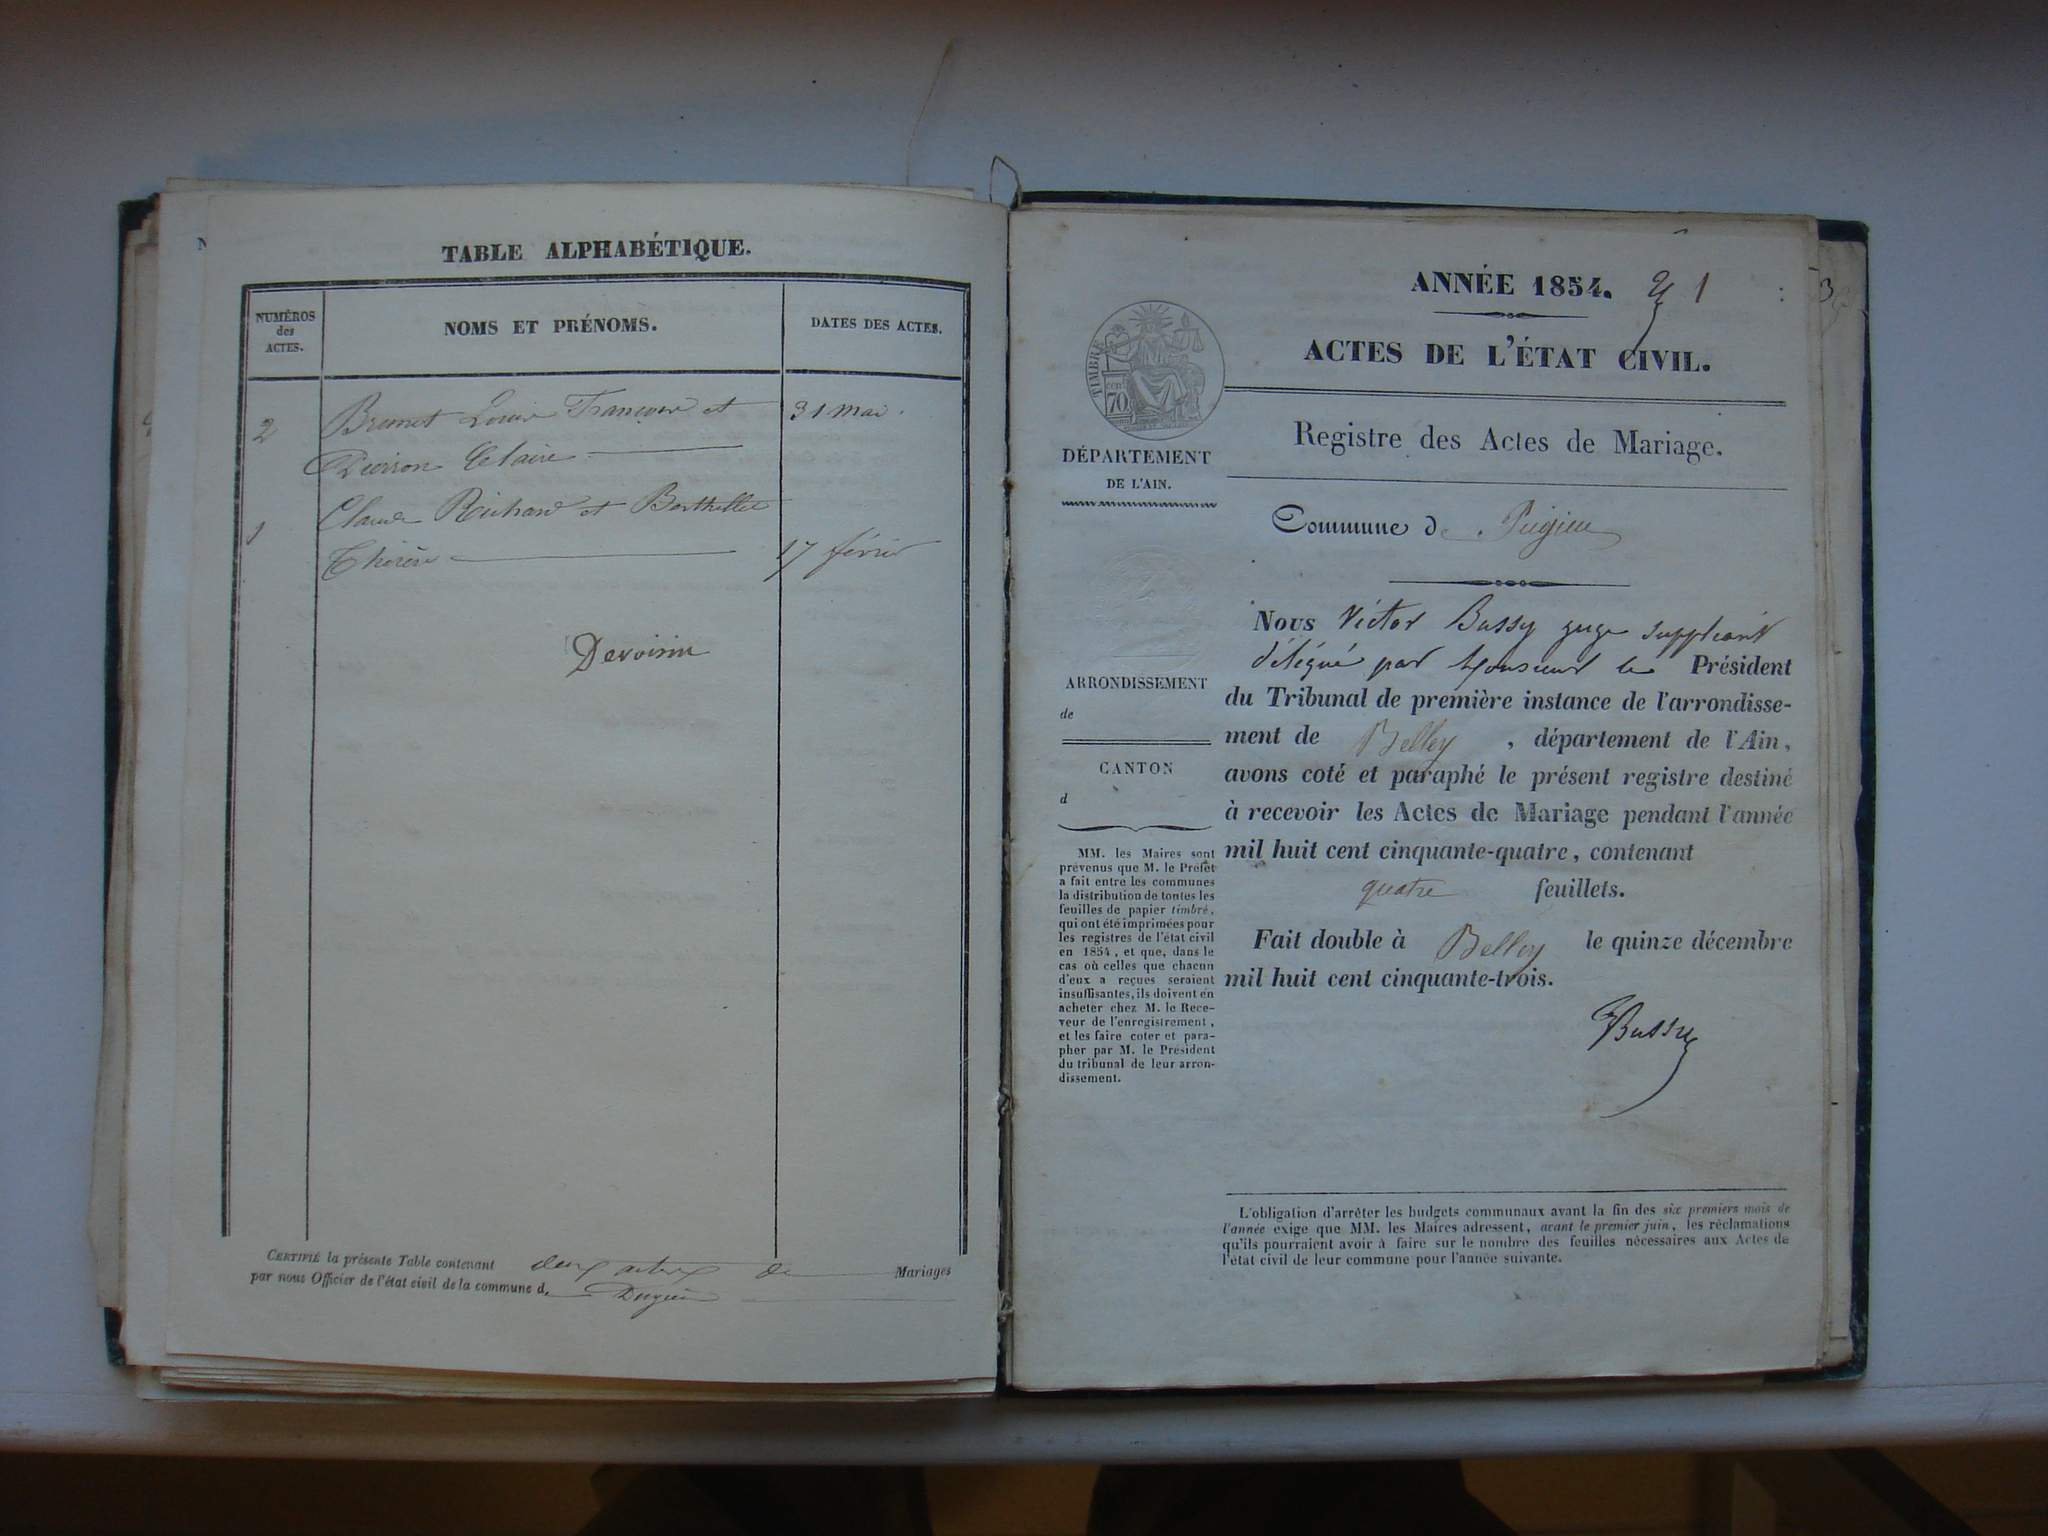 TABLE ALPHABÉTIQUE.
NUMÉROS
des
ACTES.
NOMS ET PRÉNOMS.
DATES DES ACTES.
2 Brunet Louis François et 31 mai.
Claire
1 Claude Richard et Berthellet
Thérèse 17 février
Devoisin
CERTIFIÉ la présente Table contenant deux actes de Mariages
par nous Officier de l'état civil de la commune d. Pugieu
ANNÉE 1854. 1
ACTES DE L'ÉTAT CIVIL.
TIMBRE
cent
70
Registre des Actes de Mariage.
DÉPARTEMENT
DE L'AIN.
Commune de Pugieu
Nous Victor Bussy juge suppléant
délégué par Monsieur le Président
du Tribunal de première instance de l'arrondisse-
ment de Belley, département de l'Ain,
avons coté et paraphé le présent registre destiné
à recevoir les Actes de Mariage pendant l'année
mil huit cent cinquante-quatre, contenant
quatre feuillets.
Fait double à Belley le quinze décembre
mil huit cent cinquante-trois.
Bussy
ARRONDISSEMENT
de
CANTON
d
MM. les Maires sont
prévenus que M. le Préfet
a fait entre les communes
la distribution de toutes les
feuilles de papier timbré,
qui ont été imprimées pour
les registres de l'état civil
en 1854, et que, dans le
cas où celles que chacun
d'eux a reçues seraient
insuffisantes, ils doivent en
acheter chez M. le Rece-
veur de l'enregistrement,
et les faire coter et para-
pher par M. le Président
du tribunal de leur arron-
dissement.
L'obligation d'arrêter les budgets communaux avant la fin des six premiers mois de
l'année exige que MM. les Maires adressent, avant le premier juin, les réclamations
qu'ils pourraient avoir à faire sur le nombre des feuilles nécessaires aux Actes de
l'état civil de leur commune pour l'année suivante.